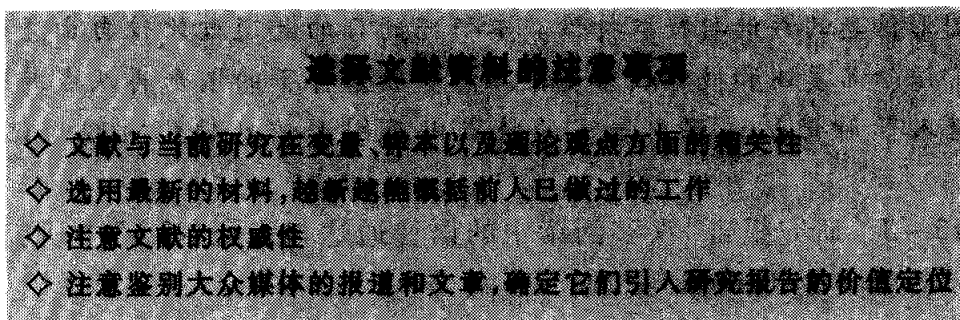 选择文献资料的注意事项
◇ 文献与当前研究在变量、样本以及理论观点方面的相关性
◇ 选用最新的材料,越新越能概括前人已做过的工作
◇ 注意文献的权威性
◇ 注意鉴别大众媒体的报道和文章,确定它们引入研究报告的价值定位